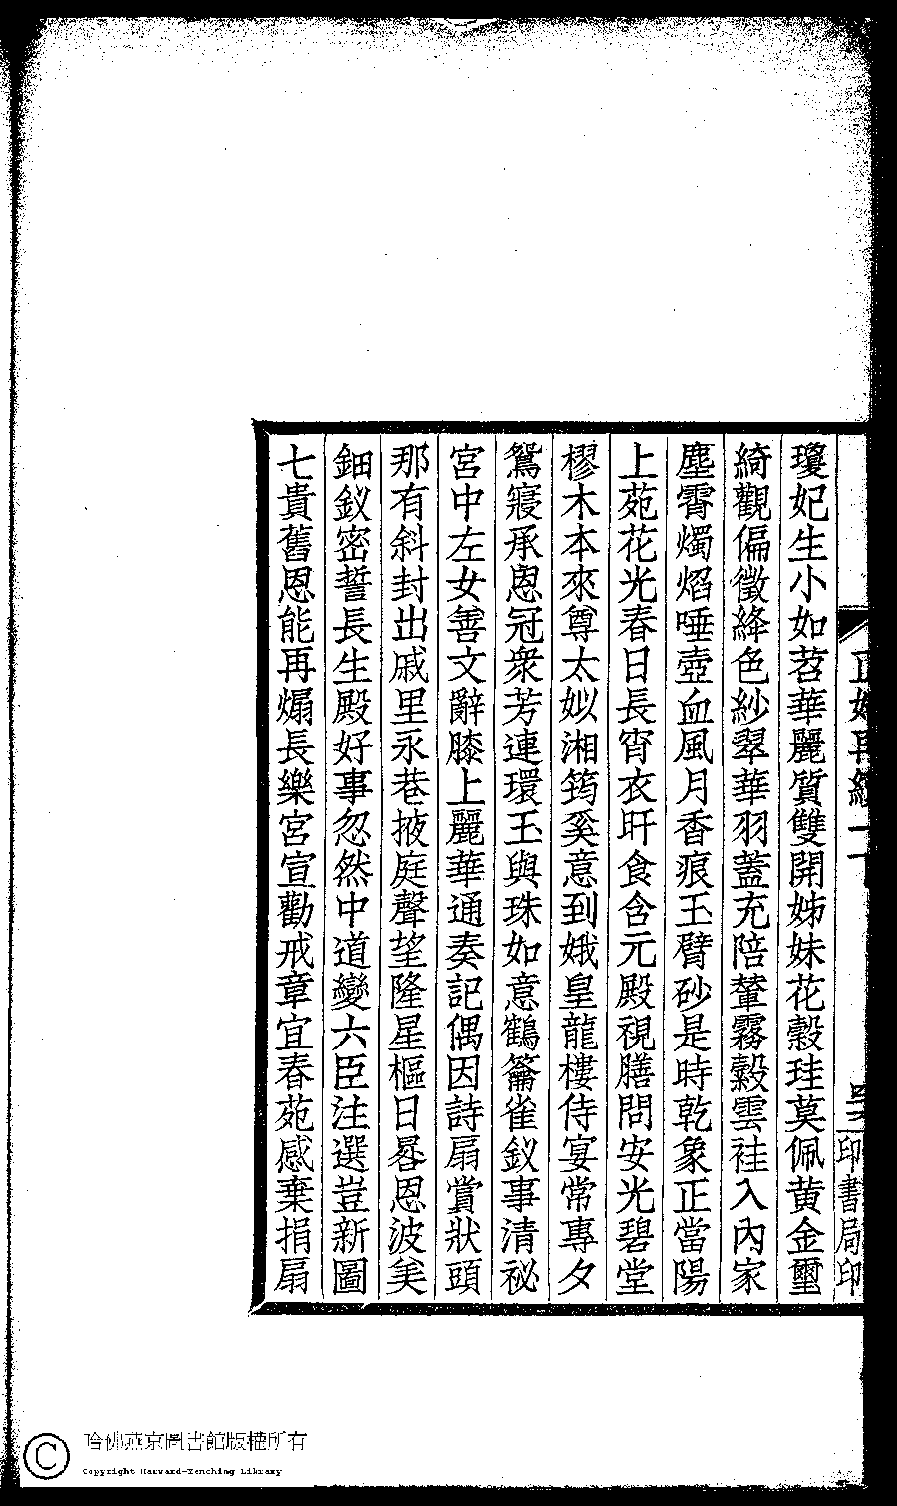 瓊妃生小如苕華麗質雙開姊妹花縠珪莫佩黄金璽
綺觀偏徵絳色紗翠華羽蓋充陪輦霧縠雲袿入內家
塵霄燭熖唾壺血風月香痕玉臂砂是時乾象正當陽
上苑花光春日長宵衣旰食含元殿視膳問安光碧堂
樛木本來尊太姒湘筠奚意到娥皇龍樓侍宴常專夕
鴛寢承恩冠衆芳連環玉與珠如意鶴籥雀釵事清祕
宮中左女善文辭膝上麗華通奏記偶因詩扇賞狀頭
那有斜封出戚里永巷掖庭聲望隆星樞日晷恩波矣
鈿釵密誓長生殿好事忽然中道變六臣注選豈新圖
七貴舊恩能再煽長樂宮宣勸戒章宜春苑感棄捐扇
印書局印
哈佛燕京圖書館版權所有
Copyright Harvard-Yenching Library